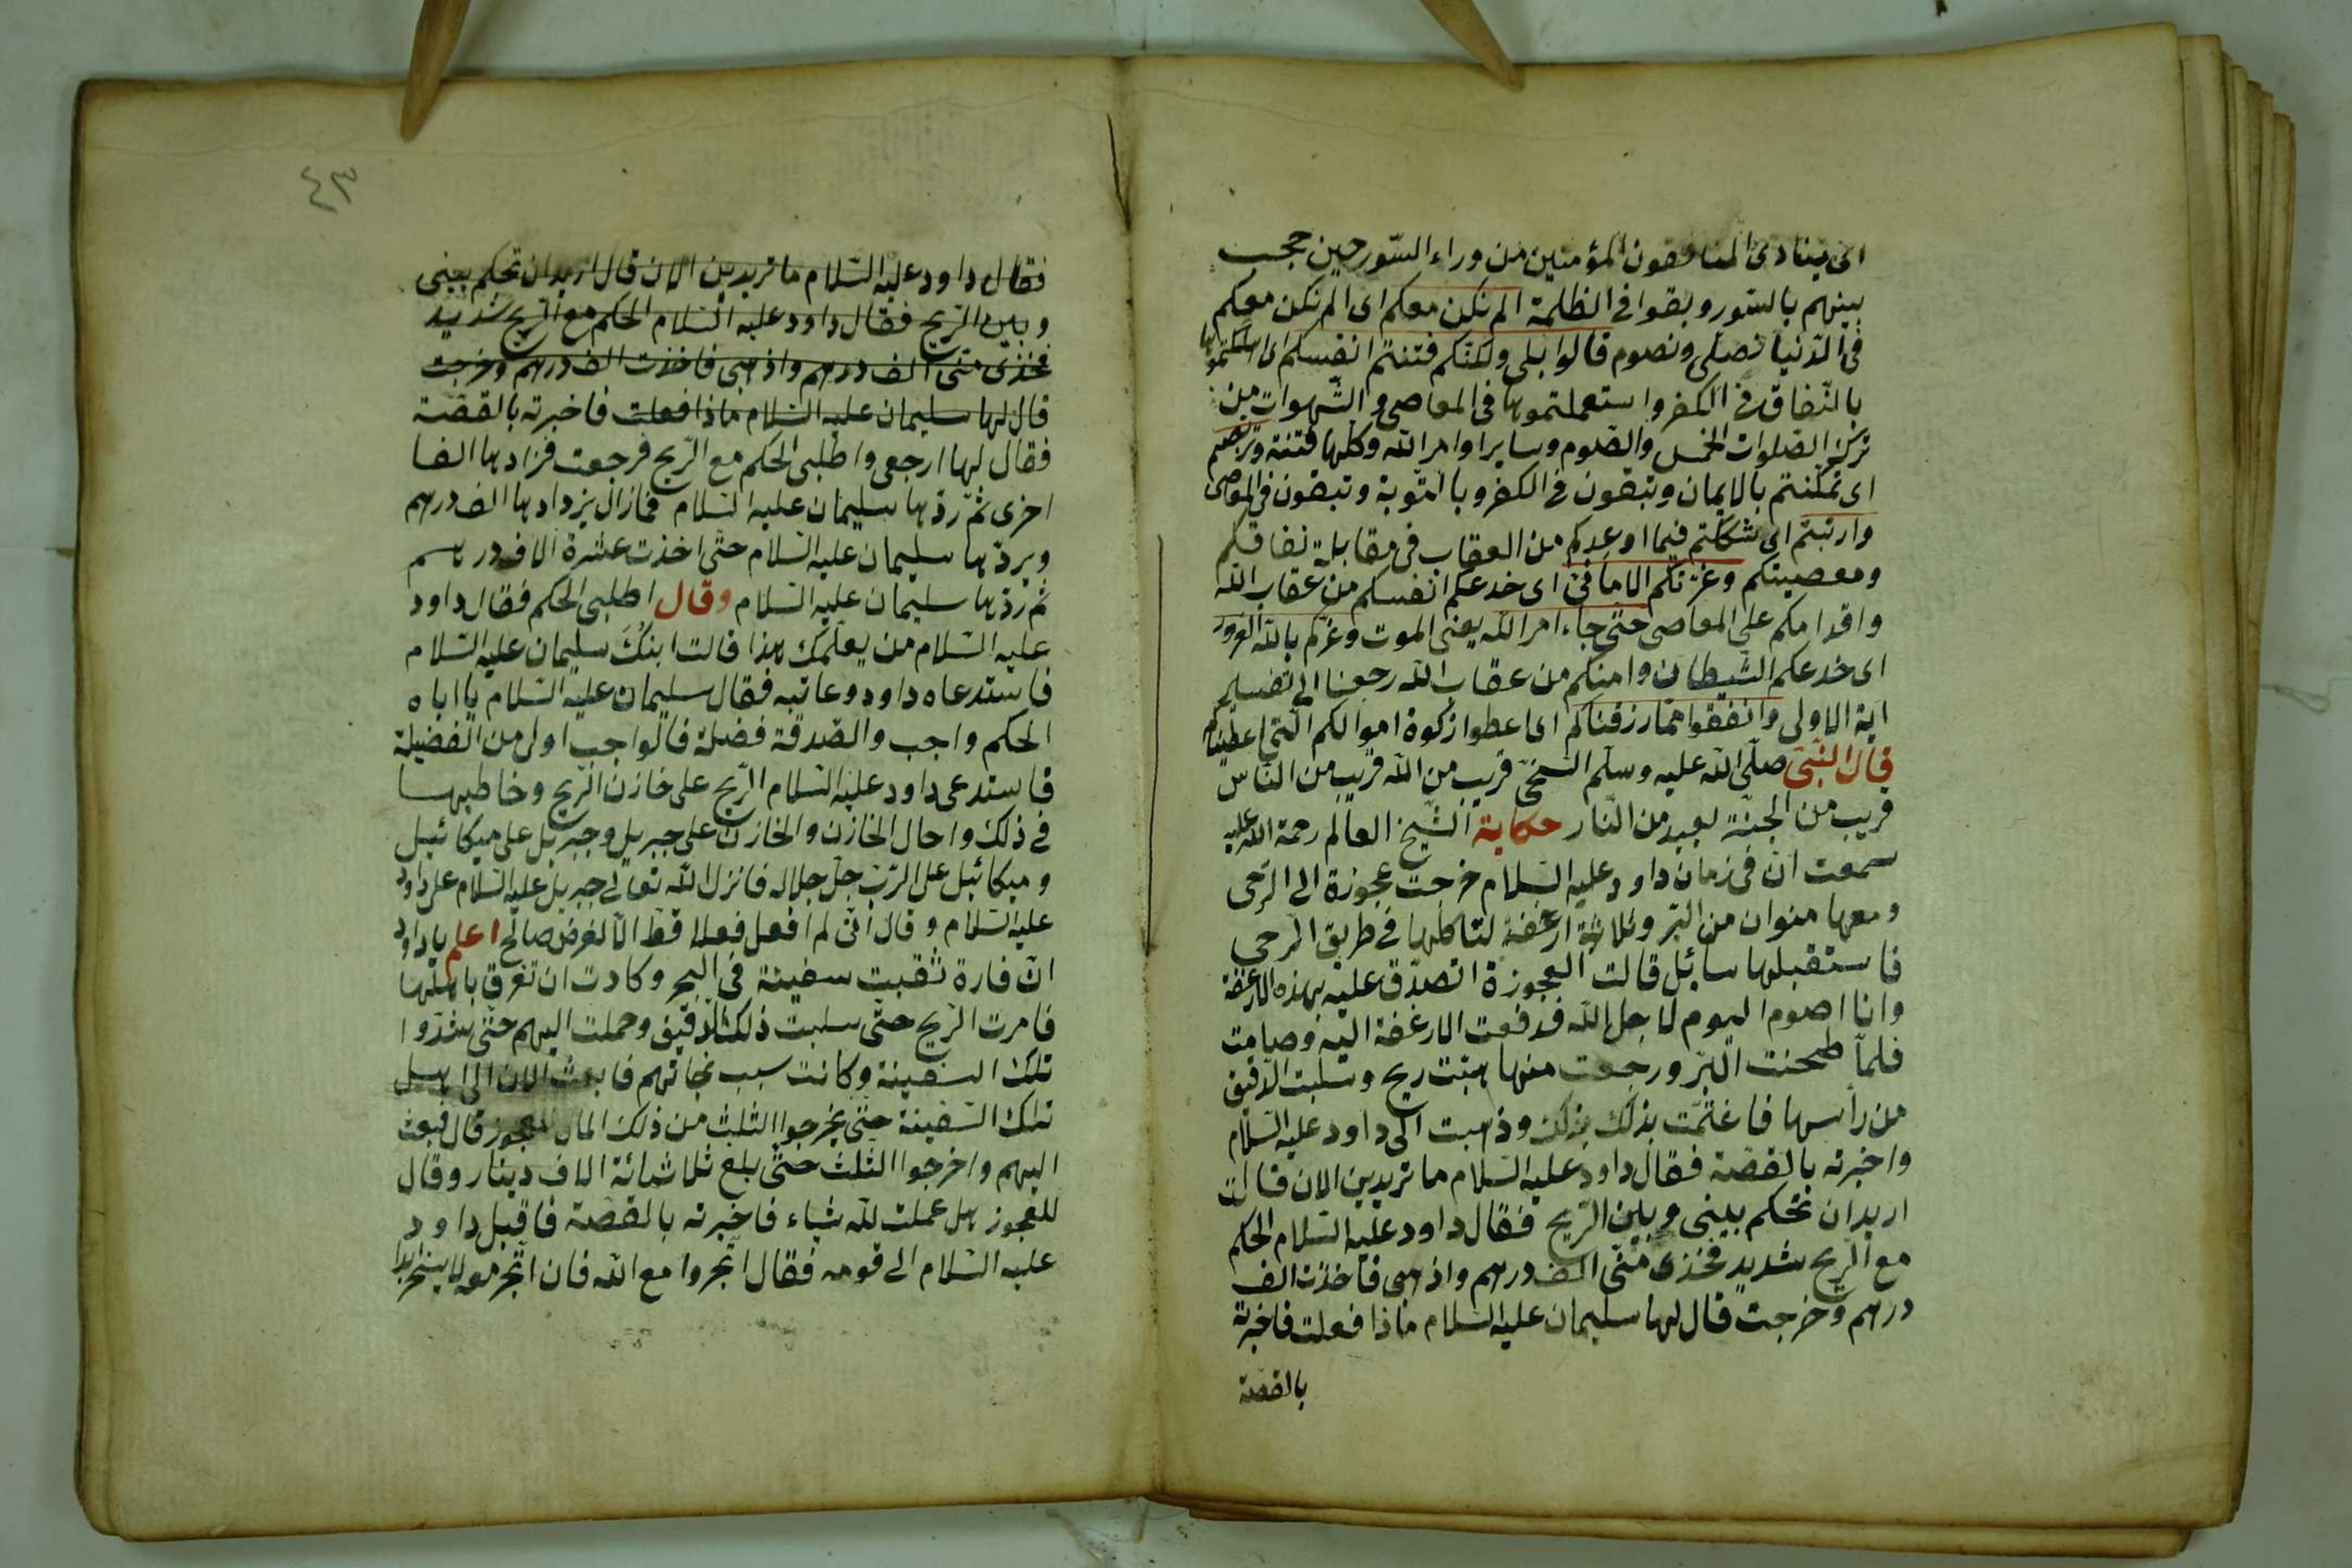 اى ينادى المنافقون المؤمنين من وراء السّور حين حجب
بينهم بالسّور وبقوا فى الظلمة الم نكن معكم اى الم نكن معكم
فى الدّنيا نصلّى ونصوم قالوا بلى ولكنّكم فتنتم انفسكم اى اهلكتموها
بالنّفاق فى الكفر واستعملتموها فى المعاصى والشّهوات من
ترك الصّلوات الخمس والصّوم وساير اوامر الله وكلّها فتنة وتربّصتم
اى تمكّنتم بالايمان وتبقون فى الكفر وبالتّوبة وتبقون فى المعاصى
وارتبتم اى شككتم فيما اوعدكم من العقاب فى مقابلة نفاقكم
ومعصيتكم وغرّتكم الامانى اى خدعكم انفسكم من عقاب الله
واقدامكم على المعاصى حتّى جاء امر الله يعنى الموت وغرّكم بالله الغرور
اى خدعكم الشّيطان وامنكم من عقاب الله رجعنا الى تفسير
اية الاولى وانفقوا ممّا رزقناكم اى اعطوا زكوة اموالكم الّتى اعطيناكم
قال النّبىّ صلّى الله عليه وسلّم السّخىّ قريب من الله قريب من النّاس
قريب من الجنّة بعيد من النّار حكاية الشّيخ العالم رحمة الله عليه
سمعت انّ فى زمان داود عليه السّلام خرجت عجوزة الى الرّحى
ومعها منوان من البرّ وثلاثة ارغفة لتاكلها فى طريق الرّحى
فاستقبلها سائل قالت العجوزة اتصدّق عليه بهذه الارغفة
وانا اصوم اليوم لاجل الله فدفعت الارغفة اليه وصامت
فلمّا طحنت البرّ ورجعت منها هبّت ريح وسلبت الدّقيق
من رأسها فاغتمّت بذلك بذلك وذهبت الى داود عليه السّلام
واخبرته بالقصّة فقال داود عليه السّلام ما تريدين الان قالت
اريد ان تحكم بينى وبين الرّيح فقال داود عليه السّلام الحكم
مع الرّيح شديد فخذى منّى الف درهم واذهبى فاخذت الف
درهم وخرجت قال لها سليمان عليه السّلام ماذا فعلت فاخبرته
بالقصّة
٤٣
فقال داود عليه السّلام ما تريدين الان قال اريد ان تحكم بينى
وبين الرّيح فقال داود عليه السّلام الحكم مع الرّيح شديد
فخذى منّى الف درهم واذهبى فاخذت الف درهم وخرجت
قال لها سليمان عليه السّلام ماذا فعلت فاخبرته بالقصّة
فقال لها ارجعى واطلبى الحكم مع الرّيح فرجعت فزادها الفا
اخرى ثمّ ردّها سليمان عليه السّلام فمازال يزدادها الف درهم
ويردّها سليمان عليه السّلام حتّى اخذت عشرة الاف درهم
ثمّ ردّها سليمان عليه السّلام وقال اطلبى الحكم فقال داود
عليه السّلام من يعلّمك هذا قالت ابنك سليمان عليه السّلام
فاستدعاه داود وعاتبه فقال سليمان عليه السّلام يا اباه
الحكم واجب والصّدقة فضلة فالواجب اولى من الفضيلة
فاستدعى داود عليه السّلام الرّيح على خازن الرّيح وخاطبها
فى ذلك واحال الخازن والخازن على جبريل وجبريل على ميكائيل
وميكائيل على الرّبّ جلّ جلاله فانزل الله تعالى جبريل عليه السّلام على داود
عليه السّلام وقال انّى لم افعل فعلا قطّ الّا لغرض صالح اعلم يا داود
انّ فارة ثقبت سفينة فى البحر وكادت ان تغرق باهلها
فامرت الرّيح حتّى سلبت ذلك الدّقيق وحملت اليهم حتّى شدّوا
تلك السّفينة وكانت سبب نجاتهم فابعث الان الى اهل
تلك السّفينة حتّى يخرجوا الثلث من ذلك المال للعجوز قال فبعث
اليهم واخرجوا الثلث حتّى بلغ ثلاثمائة الاف دينار وقال
للعجوز هل عملت لله شياء فاخبرته بالقصّة فاقبل داود
عليه السّلام الى قومه فقال اتّجروا مع الله فان اتّجرتموه لا يخسر ابدا